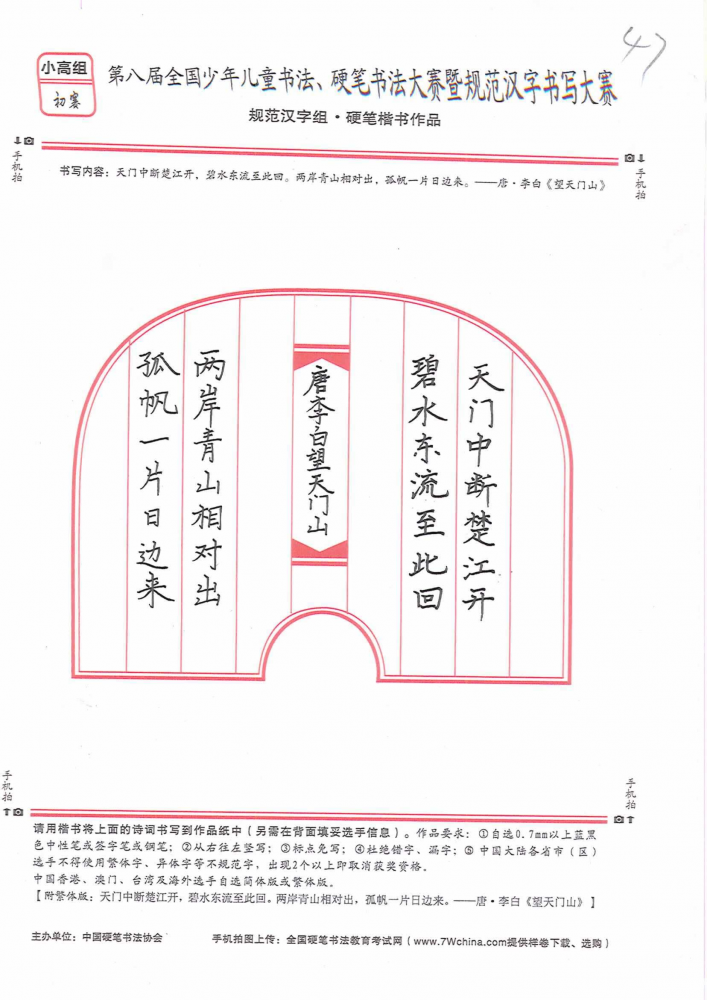 47
小高组
初赛
第八届全国少年儿童书法、硬笔书法大赛暨规范汉字书写大赛
规范汉字组·硬笔楷书作品
手机拍
手机拍
书写内容：天门中断楚江开，碧水东流至此回。两岸青山相对出，孤帆一片日边来。——唐·李白《望天门山》
天门中断楚江开
碧水东流至此回
唐李白望天门山
两岸青山相对出
孤帆一片日边来
手机拍
手机拍
请用楷书将上面的诗词书写到作品纸中（另需在背面填妥选手信息）。作品要求：①自选0.7mm以上蓝黑
色中性笔或签字笔或钢笔；②从右往左竖写；③标点免写；④杜绝错字、漏字；⑤中国大陆各省市（区）
选手不得使用繁体字、异体字等不规范字，出现2个以上即取消获奖资格。
中国香港、澳门、台湾及海外选手自选简体版或繁体版。
【附繁体版：天门中断楚江开，碧水东流至此回。两岸青山相对出，孤帆一片日边来。——唐·李白《望天门山》】
主办单位：中国硬笔书法协会
手机拍图上传：全国硬笔书法教育考试网（www.7Wchina.com提供样卷下载、选购）